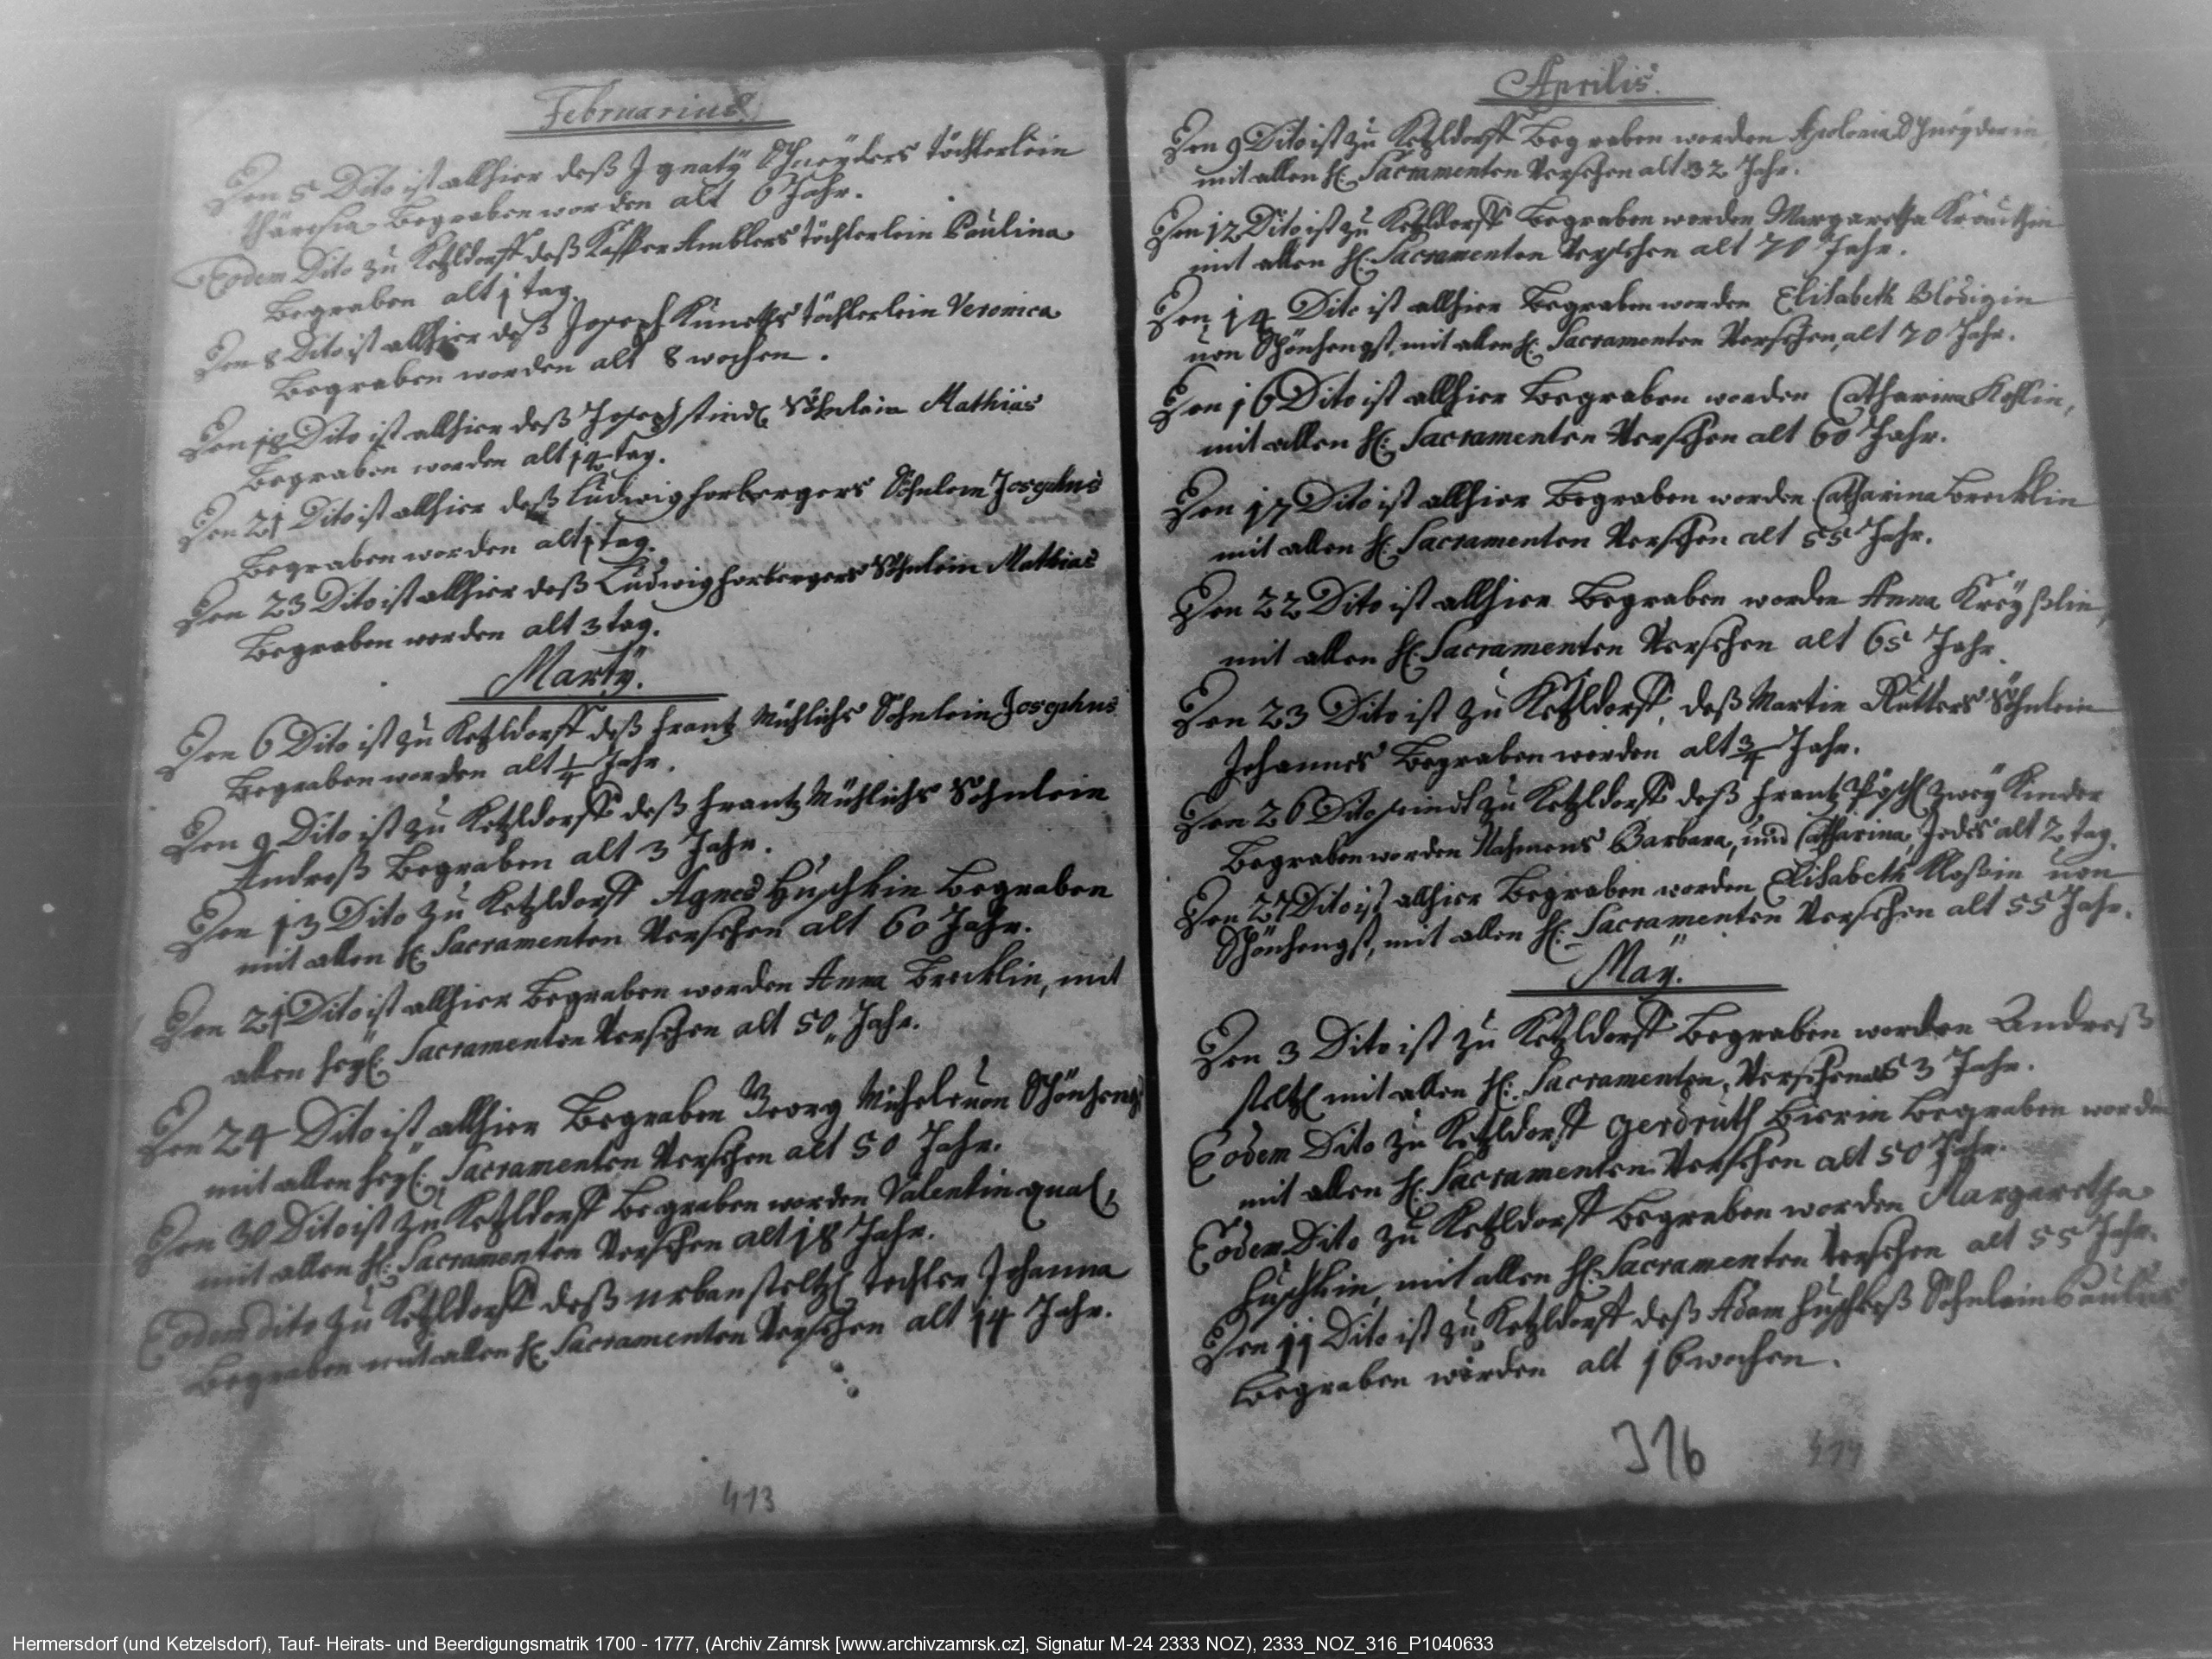 Februarius.
Den 5 Dito ist allhier deß Ignatÿ Schneÿders töchterlein
Begraben worden alt 6 Jahr.
Eodem Dito zu Ketzldorff deß Kasper Amblers töchterlein Paulina
Begraben alt 1 tag.
Den 8 Dito ist allhier deß Joseph töchterlein Veronica
Begraben worden alt 8 wochen.
Den 18 Dito ist allhier deß Joseph Söhnlein Mathias
Begraben worden alt 14 tag.
Den 21 Dito ist allhier deß Ludwig Forbergers Söhnlein Josephus
Begraben worden alt 1 tag.
Den 23 Dito ist allhier deß Ludwig Forbergers Söhnlein Mathias
Begraben worden alt 3 tag.
Martÿ.
Den 6 Dito ist zu Ketzldorff deß Frantz Mühlichs Söhnlein Josephus
Begraben worden alt 1/4 Jahr.
Den 9 Dito ist zu Ketzldorff deß Frantz Mühlichs Söhnlein
Andreß Begraben alt 3 Jahr.
Den 13 Dito zu Ketzldorff Agnes Huschkin Begraben
mit allen h: Sacramenten Versehen alt 60 Jahr.
Den 21 Dito ist allhier Begraben worden Anna Brecklin, mit
allen heyl: Sacramenten Versehen alt 50 Jahr.
Den 24 Dito ist allhier Begraben Georg von Schönhengst
mit allen heyl: Sacramenten Versehen alt 50 Jahr.
Den 30 Dito ist zu Ketzldorff Begraben worden Valentin
mit allen h: Sacramenten Versehen alt 18 Jahr.
Eodem dito zu Ketzldorff deß Urban Steltzl tochter Johanna
Begraben mit allen h: Sacramenten Versehen alt 14 Jahr.
413
Aprilis.
Den 9 Dito ist zu Ketzldorff Begraben worden Apolonia Schneÿderin
mit allen h: Sacramenten Versehen alt 32 Jahr.
Den 12 Dito ist zu Ketzldorff Begraben worden Margaretha
mit allen h: Sacramenten Versehen alt 70 Jahr.
Den 14 Dito ist allhier Begraben worden Elisabeth Blodigin
von Schönhengst, mit allen h: Sacramenten Versehen, alt 70 Jahr.
Den 16 Dito ist allhier Begraben worden Catharina
mit allen h: Sacramenten Versehen alt 60 Jahr.
Den 17 Dito ist allhier Begraben worden Catharina Brecklin
mit allen h: Sacramenten Versehen alt 55 Jahr.
Den 22 Dito ist allhier Begraben worden Anna Kreÿßlin,
mit allen h: Sacramenten Versehen alt 65 Jahr.
Den 23 Dito ist zu Ketzldorff, deß Martin Rutters Söhnlein
Johannes Begraben worden alt 3/4 Jahr.
Den 26 Dito seindt zu Ketzldorff deß Frantz zweÿ Kinder
Begraben worden Nahmens Barbara, und Catharina, Jedes alt 2 tag.
Den 27 Dito ist allhier Begraben worden Elisabeth von
Schönhengst, mit allen h: Sacramenten Versehen alt 55 Jahr.
Maÿ.
Den 3 Dito ist zu Ketzldorff Begraben worden Andreß
Steltzl mit allen h: Sacramenten Versehen 3 Jahr.
Eodem Dito zu Ketzldorff Gerdruth Bierin Begraben worden
mit allen h: Sacramenten Versehen alt 50 Jahr.
Eodem Dito zu Ketzldorff Begraben worden Margaretha
Huschkin, mit allen h: Sacramenten Versehen alt 55 Jahr.
Den 11 Dito ist zu Ketzldorff deß Adam Söhnlein Paulus
Begraben worden alt 16 wochen.
316
414
Hermersdorf (und Ketzelsdorf), Tauf- Heirats- und Beerdigungsmatrik 1700 - 1777, (Archiv Zámrsk [www.archivzamrsk.cz], Signatur M-24 2333 NOZ), 2333_NOZ_316_P1040633